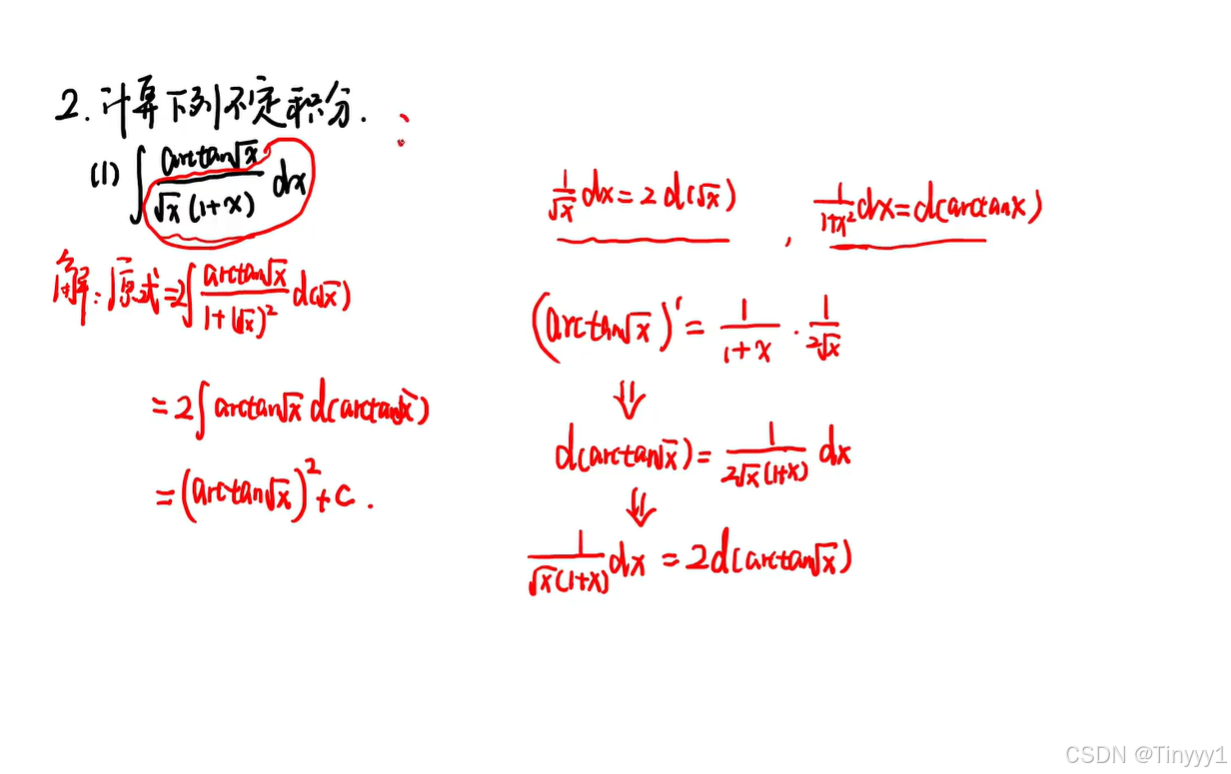 2. 计算下列不定积分. :
(1) ∫ arctan√x / √x (1+x) dx
解: 原式=2∫ arctan√x / 1+(√x)² d(√x)
= 2∫ arctan√x d(arctan√x)
= (arctan√x)² + C .
1/√x dx = 2 d(√x) , 1/1+x² dx = d(arctanx)
(arctan√x)' = 1/1+x · 1/2√x
⇓
d(arctan√x) = 1/2√x(1+x) dx
⇓
1/√x(1+x) dx = 2d(arctan√x)
CSDN @Tinyyy1